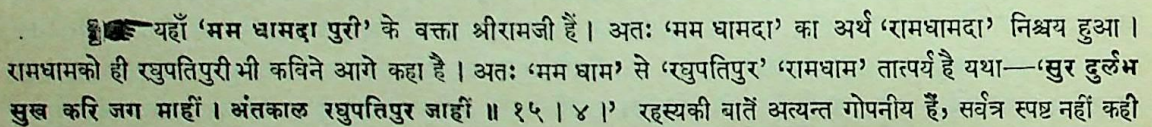 यहाँ ‘मम धामदा पुरी’ के वक्ता श्रीरामजी हैं। अतः ‘मम धामदा’ का अर्थ ‘रामधामदा’ निश्चय हुआ।
रामधामको ही रघुपतिपुरी भी कविने आगे कहा है। अतः ‘मम धाम’ से ‘रघुपतिपुर’ ‘रामधाम’ तात्पर्य है यथा—‘सुर दुर्लभ
सुख करि जग माहीं। अंतकाल रघुपतिपुर जाहीं॥ १५।४।’ रहस्यकी बातें अत्यन्त गोपनीय हैं, सर्वत्र स्पष्ट नहीं कही